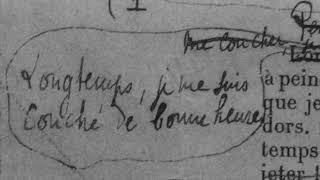 me coucher,
Longtemps, je me suis
Couché de bonne heure
à pein
que je
dors.
temps
jeter l